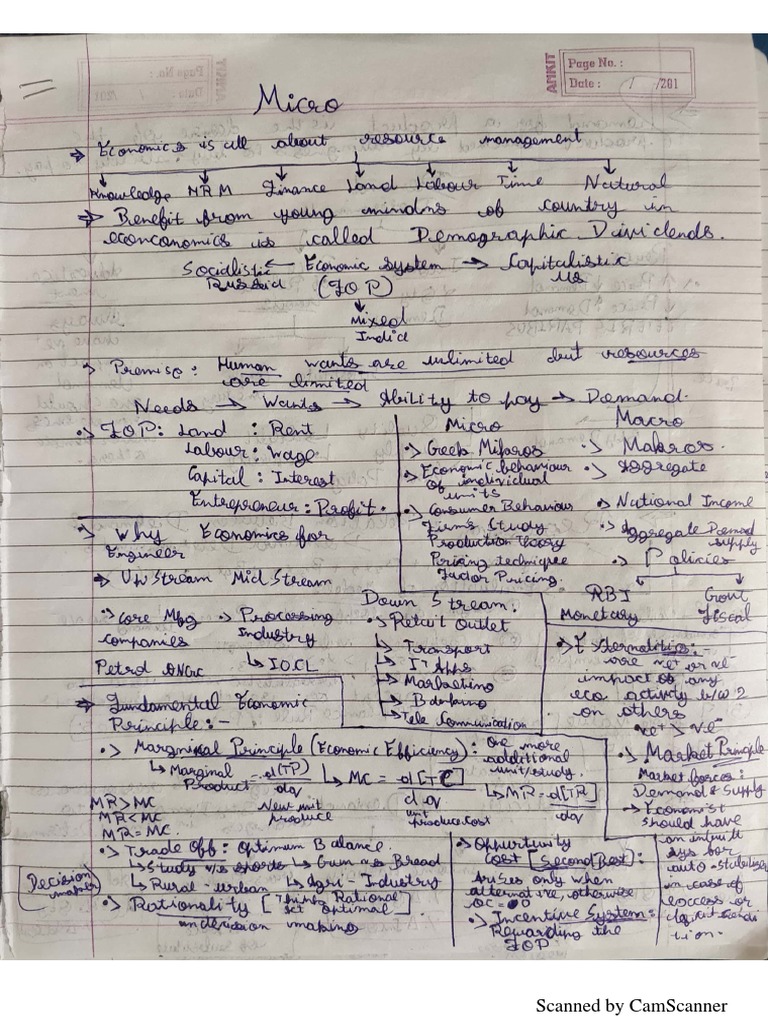 ANKIT
Page No. :
Date : / /201
Micro
⇒ Economics is all about resource management
Knowledge MRM Finance Land Labour Time Natural
⇒ Benefit from young mindns of country in
econconomics is called Demographic Dividends.
Socialistic ← Economic system → Capitalistic
Russia (FOP) US
Mixed
India
Premise: Human wants are unlimited but resources
are limited
Needs → Wants → Ability to pay → Demand.
FOP: Land : Rent
Labour : Wage
Capital : Interest
Entrepreneur : Profit
Micro
Greek Mikros
Economic behaviour
of individual
units
Consumer Behaviour
Firms Study
Production theory
Pricing technique
Factor Pricing.
Macro
Makros.
Aggregate
National Income
Aggregate Demad
supply
Policies
RBI Govt
Monetary fiscal
Why Economics for
Engineer
→ Up Stream Mid Stream
Core Mfg Processing
companies Industry
Petrol ONGC ↳ IOCL
Down Stream:
Retail Outlet
Transport
IT Apps
Marketing
Tele Communication
Externalities :-
are +ve or -ve
impact of any
eco activity b/w 2
on others
⇒ Fundamental Economic
Principle :-
Marginal Principle (Economic Efficiency) : One more
additional
unit/study.
↳ Marginal Product = d(TP)/dq ↳ MC = d[TC]/dq ↳ MR = d[TR]/dq
New unit
produce
unit
produce cost
MR > MC
MR < MC
MR = MC.
Market Principle
Market forces :
Demand & Supply
→ Economist
should have
an inbuilt
sys for
auto-stabilizer
in case of
excess or
Trade Off : Optimum Balance.
↳ Study v/s sports ↳ Gun v/s Bread
↳ Rural - urban ↳ Agri - Industry
Decision
making
Rationality [Think Rational
Act optimal]
in decision making
Oppurtunity
Cost [Second Best] :
Aruses only when
alternative, otherwise
OC = 0
Incentive System :
Rewarding the
FOP
Scanned by CamScanner